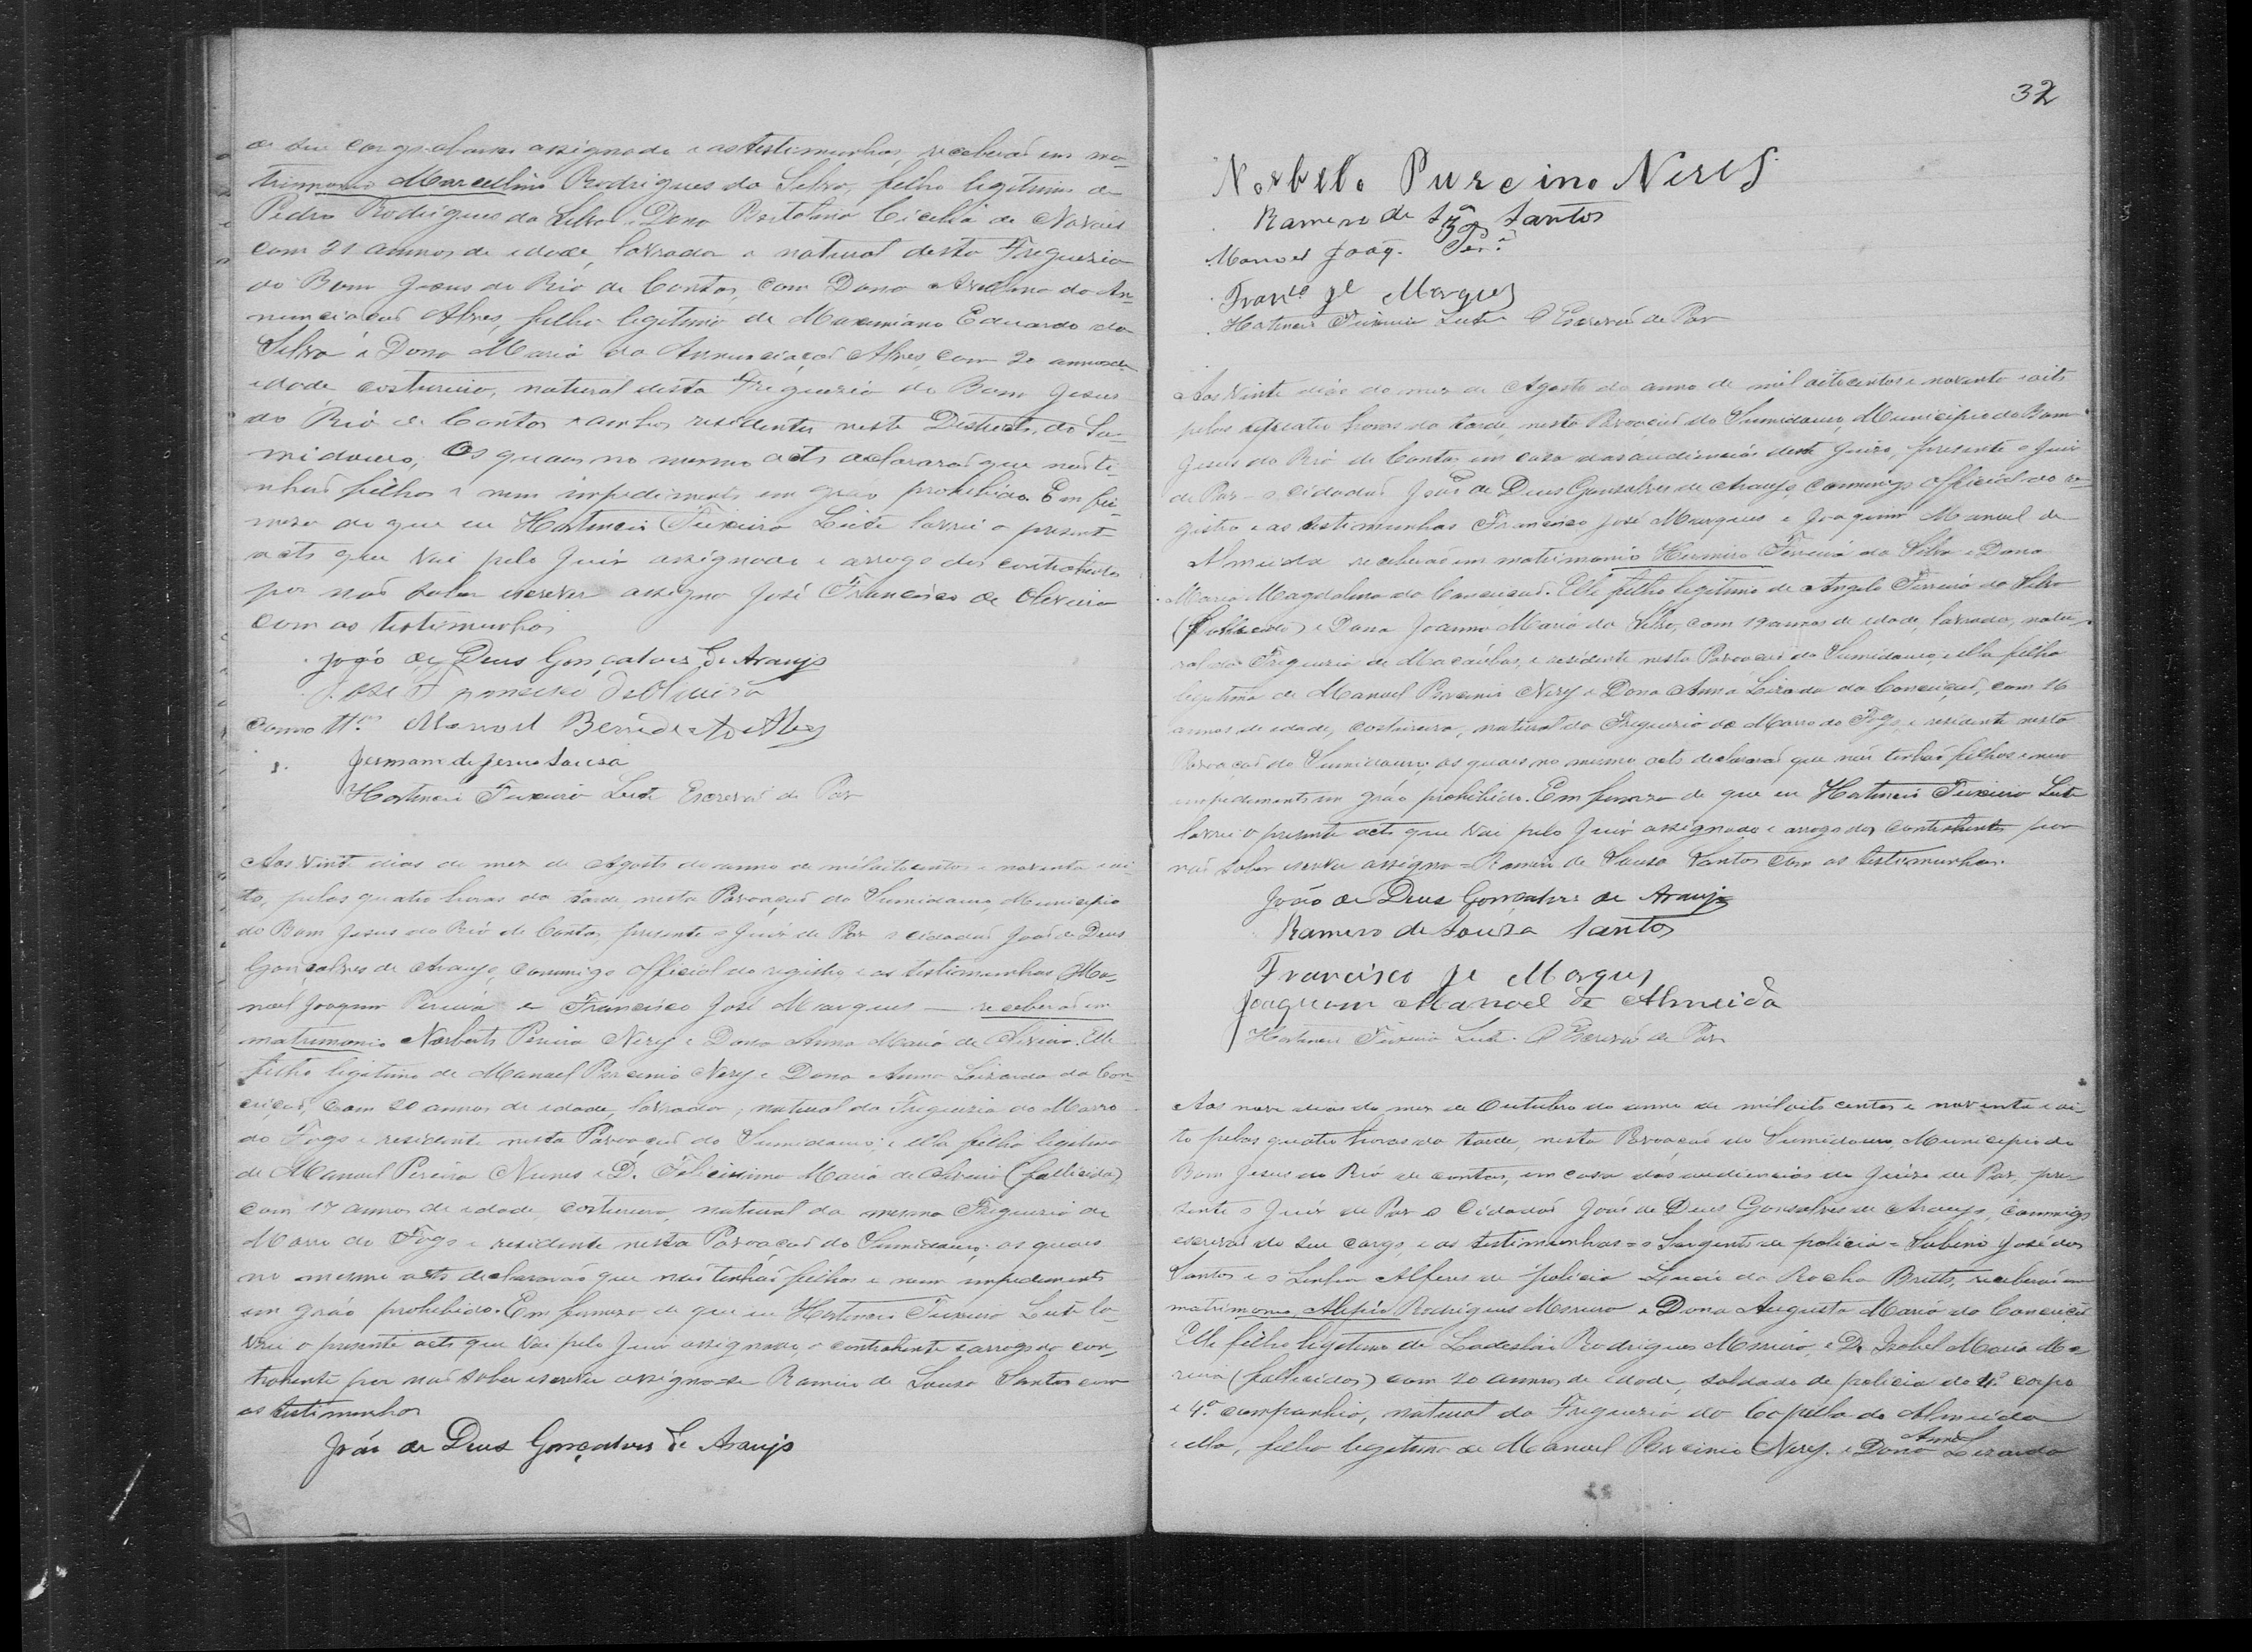 de seu cargo abaixo assignado e as testimunhas, receberaõ em ma-
trimmonio Marcellino Rodrigues da Silva, filho legitimo de
Pedro Rodrigues da Silva e Dona Cicilia de Novais
com 21 annos de idade, lavrador e natural desta Freguezia
do Bom Jesus do Rio de Contas, com Dona da An-
nunciaçaõ Alves, filha legitima de Maximiano Eduardo da
Silva e Dona Maria da Annunciaçaõ Alves, com 20 annos de
idade, costureira, natural desta Freguezia do Bom Jesus
do Rio de Contas e ambos residentes neste Districto do Su-
midouro, Os quaes no mesmo acto declararaõ que naõ ti-
nhaõ filhos e nem impedimento em gráo prohibido. Em fir-
meza do que eu Hortencio Teixeira Leite lavrei o presente
acto que vai pelo Juiz assignado e arrogo dos contrahentes
por naõ saber escrever assigna José Francisco de Oliveira
com as testimunhas
João de Deus Gonçalves de Araujo
José Francisco de Oliveira
Como tt.as Manoel Benedicto Alves
Jermano de Jesus Sousa
Hortencio Teixeira Leite Escrivaõ de Paz
Aos vinte dias do mez de Agosto do anno de mil oitocentos e noventa e oi-
to, pelas quatro horas da tarde, nesta Povoaçaõ do Sumidouro, Municipio
do Bom Jesus do Rio de Contas, presente o Juiz de Paz o cidadaõ Joaõ de Deus
Gonçalves de Araujo, commigo official do registro e as testimunhas Ma-
noel Joaquim Pereira e Francisco José Marques — receberaõ em
matrimonio Norberto Pereira Nery e Dona Anna Maria de Oliveira. Elle
filho legitimo de Manoel Porcinio Nery e Dona Anna Lizarda da Con-
ceiçaõ, com 20 annos de idade, lavrador, natural da Freguezia do Morro
do Fogo e residente nesta Povoaçaõ do Sumidouro; e ella filha legitima
de Manoel Pereira Nunes e D. Felicissima Maria de Oliveira (fallicida)
com 17 annos de idade, costureira, natural da mesma Freguezia do
Morro do Fogo e residente nesta Povoaçaõ do Sumidouro; os quaes
no mesmo acto declararaõ que naõ tinhaõ filhos e nem impedimento
em gráo prohibido. Em firmeza do que eu Hortencio Teixeira Leite la-
vrei o presente acto que vai pelo Juiz assignado, o contrahente e arrogo da con-
trahente por naõ saber escrever assigna-se Ramiro de Souza Santos com
as testimunhas
João de Deus Gonçalves de Araujo
32
Norbelo Purcino Neres
Ramero de Sza Santos
Manoel Joaq. Per.a
Franco Je Marques
Hortencio Teixeira Leite O Escrivaõ de Paz
Aos vinte dias do mez de Agosto do anno de mil oitocentos e noventa e oito
pelas quatro horas da tarde, nesta Povoaçaõ do Sumidouro, Municipio do Bom
Jesus do Rio de Contas em casa das audiencias deste Juizo, presente o Juiz
de Paz o cidadaõ Joaõ de Deus Gonsalves de Araujo, commigo official do re-
gistro e as testimunhas Francisco José Marques e Joaquim Manoel de
Almeida receberaõ em matrimonio Hermiro Ferreira da Silva e Dona
Maria Magdalena da Conceiçaõ. Elle filho legitimo de Angelo Ferreira da Silva
(fallicido) e Dona Joanna Maria da Silva, com 19 annos de idade, lavrador, natu-
ral da Freguezia de Macaúbas, e residente nesta Povoaçaõ do Sumidouro, e ella filha
legitima de Manoel Porcinio Nery e Dona Anna Lizarda da Conceiçaõ, com 16
annos de idade, costureira, natural da Freguezia do Morro do Fogo, e residente nesta
Povoaçaõ do Sumidouro, os quaes no mesmo acto declararaõ que naõ tinhaõ filhos e nem
impedimento em gráo prohibido. Em firmeza do que eu Hortencio Teixeira Leite
lavrei o presente acto que vai pelo Juiz assignado e arrogo dos contrahentes por
naõ saber escrever assigna = Ramiro de Souza Santos com as testimunhas.
João de Deus Gonçalves de Araujo
Ramero de Souza Santos
Francisco Je Marques
Joaquim Manoel de Almeida
Hortencio Teixeira Leite. O Escrivaõ de Paz
Aos nove dias do mez de Outubro do anno de mil oito centos e noventa e oi-
to pelas quatro horas da tarde, nesta Povoaçaõ do Sumidouro, Municipio do
Bom Jesus do Rio de contas, em casa das audiencias do Juizo de Paz, pre-
sente o Juiz de Paz o Cidadaõ Joaõ de Deus Gonsalves de Araujo, commigo
escrivaõ do seu cargo, e as testimunhas = o Sargento de policia = Sabino José dos
Santos e o Alferes de policia Lucio da Rocha Britto, receberaõ em
matrimonio Alipio Rodrigues Moreira e Dona Augusta Maria da Conceiçaõ
Elle filho legitimo de Ladeslau Rodrigues Moreira, e D. Izabel Maria Mo-
reira (fallicidos) com 20 annos de idade, soldado de policia do 4.º corpo
e 4.a companhia, natural da Freguezia da Capella do Almeida
e ella, filha legitima de Manoel Porcinio Nery, e Dona Anna Lizarda